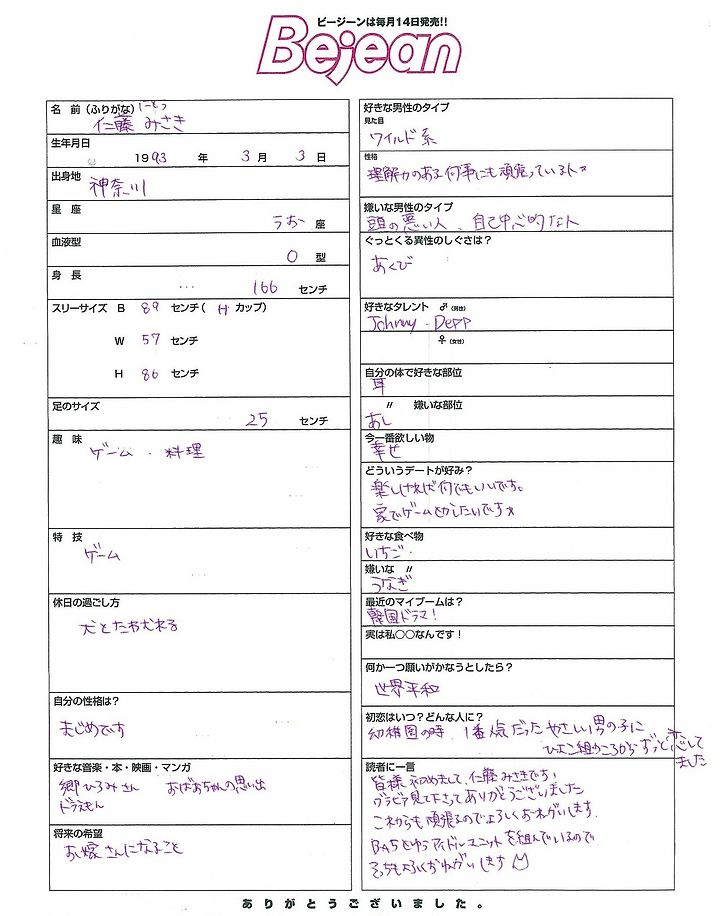 ビージーンは毎月14日発売!!
Bejean
名 前 (ふりがな) にとう
仁藤 みさき
生年月日
1993 年 3月 3日
出身地
神奈川
星 座
うお 座
血液型
O 型
身 長
166 センチ
スリーサイズ B 89 センチ( H カップ)
W 57 センチ
H 86 センチ
足のサイズ
25 センチ
趣 味
ゲーム・料理
特 技
ゲーム
休日の過ごし方
犬とたわむれる
自分の性格は?
まじめです
好きな音楽・本・映画・マンガ
郷ひろみさん おばあちゃんの思い出
ドラえもん
将来の希望
お嫁さんになること
好きな男性のタイプ
見た目
ワイルド系
性格
理解力のある何事にも頑張っている人
嫌いな男性のタイプ
頭の悪い人、自己中心的な人
ぐっとくる異性のしぐさは?
あくび
好きなタレント ♂(男性)
Johnny・Depp
♀(女性)
自分の体で好きな部位
耳
〃 嫌いな部位
あし
今一番欲しい物
幸せ
どういうデートが好み?
楽しければ何でもいいです。
家でゲームとかしたいです
好きな食べ物
いちご・
嫌いな 〃
うなぎ
最近のマイブームは?
韓国ドラマ!
実は私○○なんです!
何か一つ願いがかなうとしたら?
世界平和
初恋はいつ?どんな人に?
幼稚園の時、1番人気だったやさしい男の子に
ひよこ組のころからずっと恋して
ました
読者に一言
皆様初めまして、仁藤みさきです
グラビア見て下さってありがとうございました
これからも頑張るのでよろしくおねがいします
とゆうアイドルユニットを組んでいるので
そちらもよろしくおねがいします
ありがとうございました。